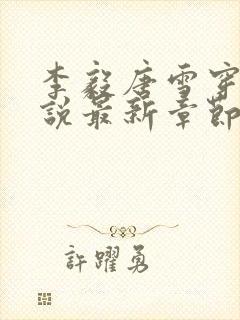 李毅唐雪穿
說最新章節
許躍勇